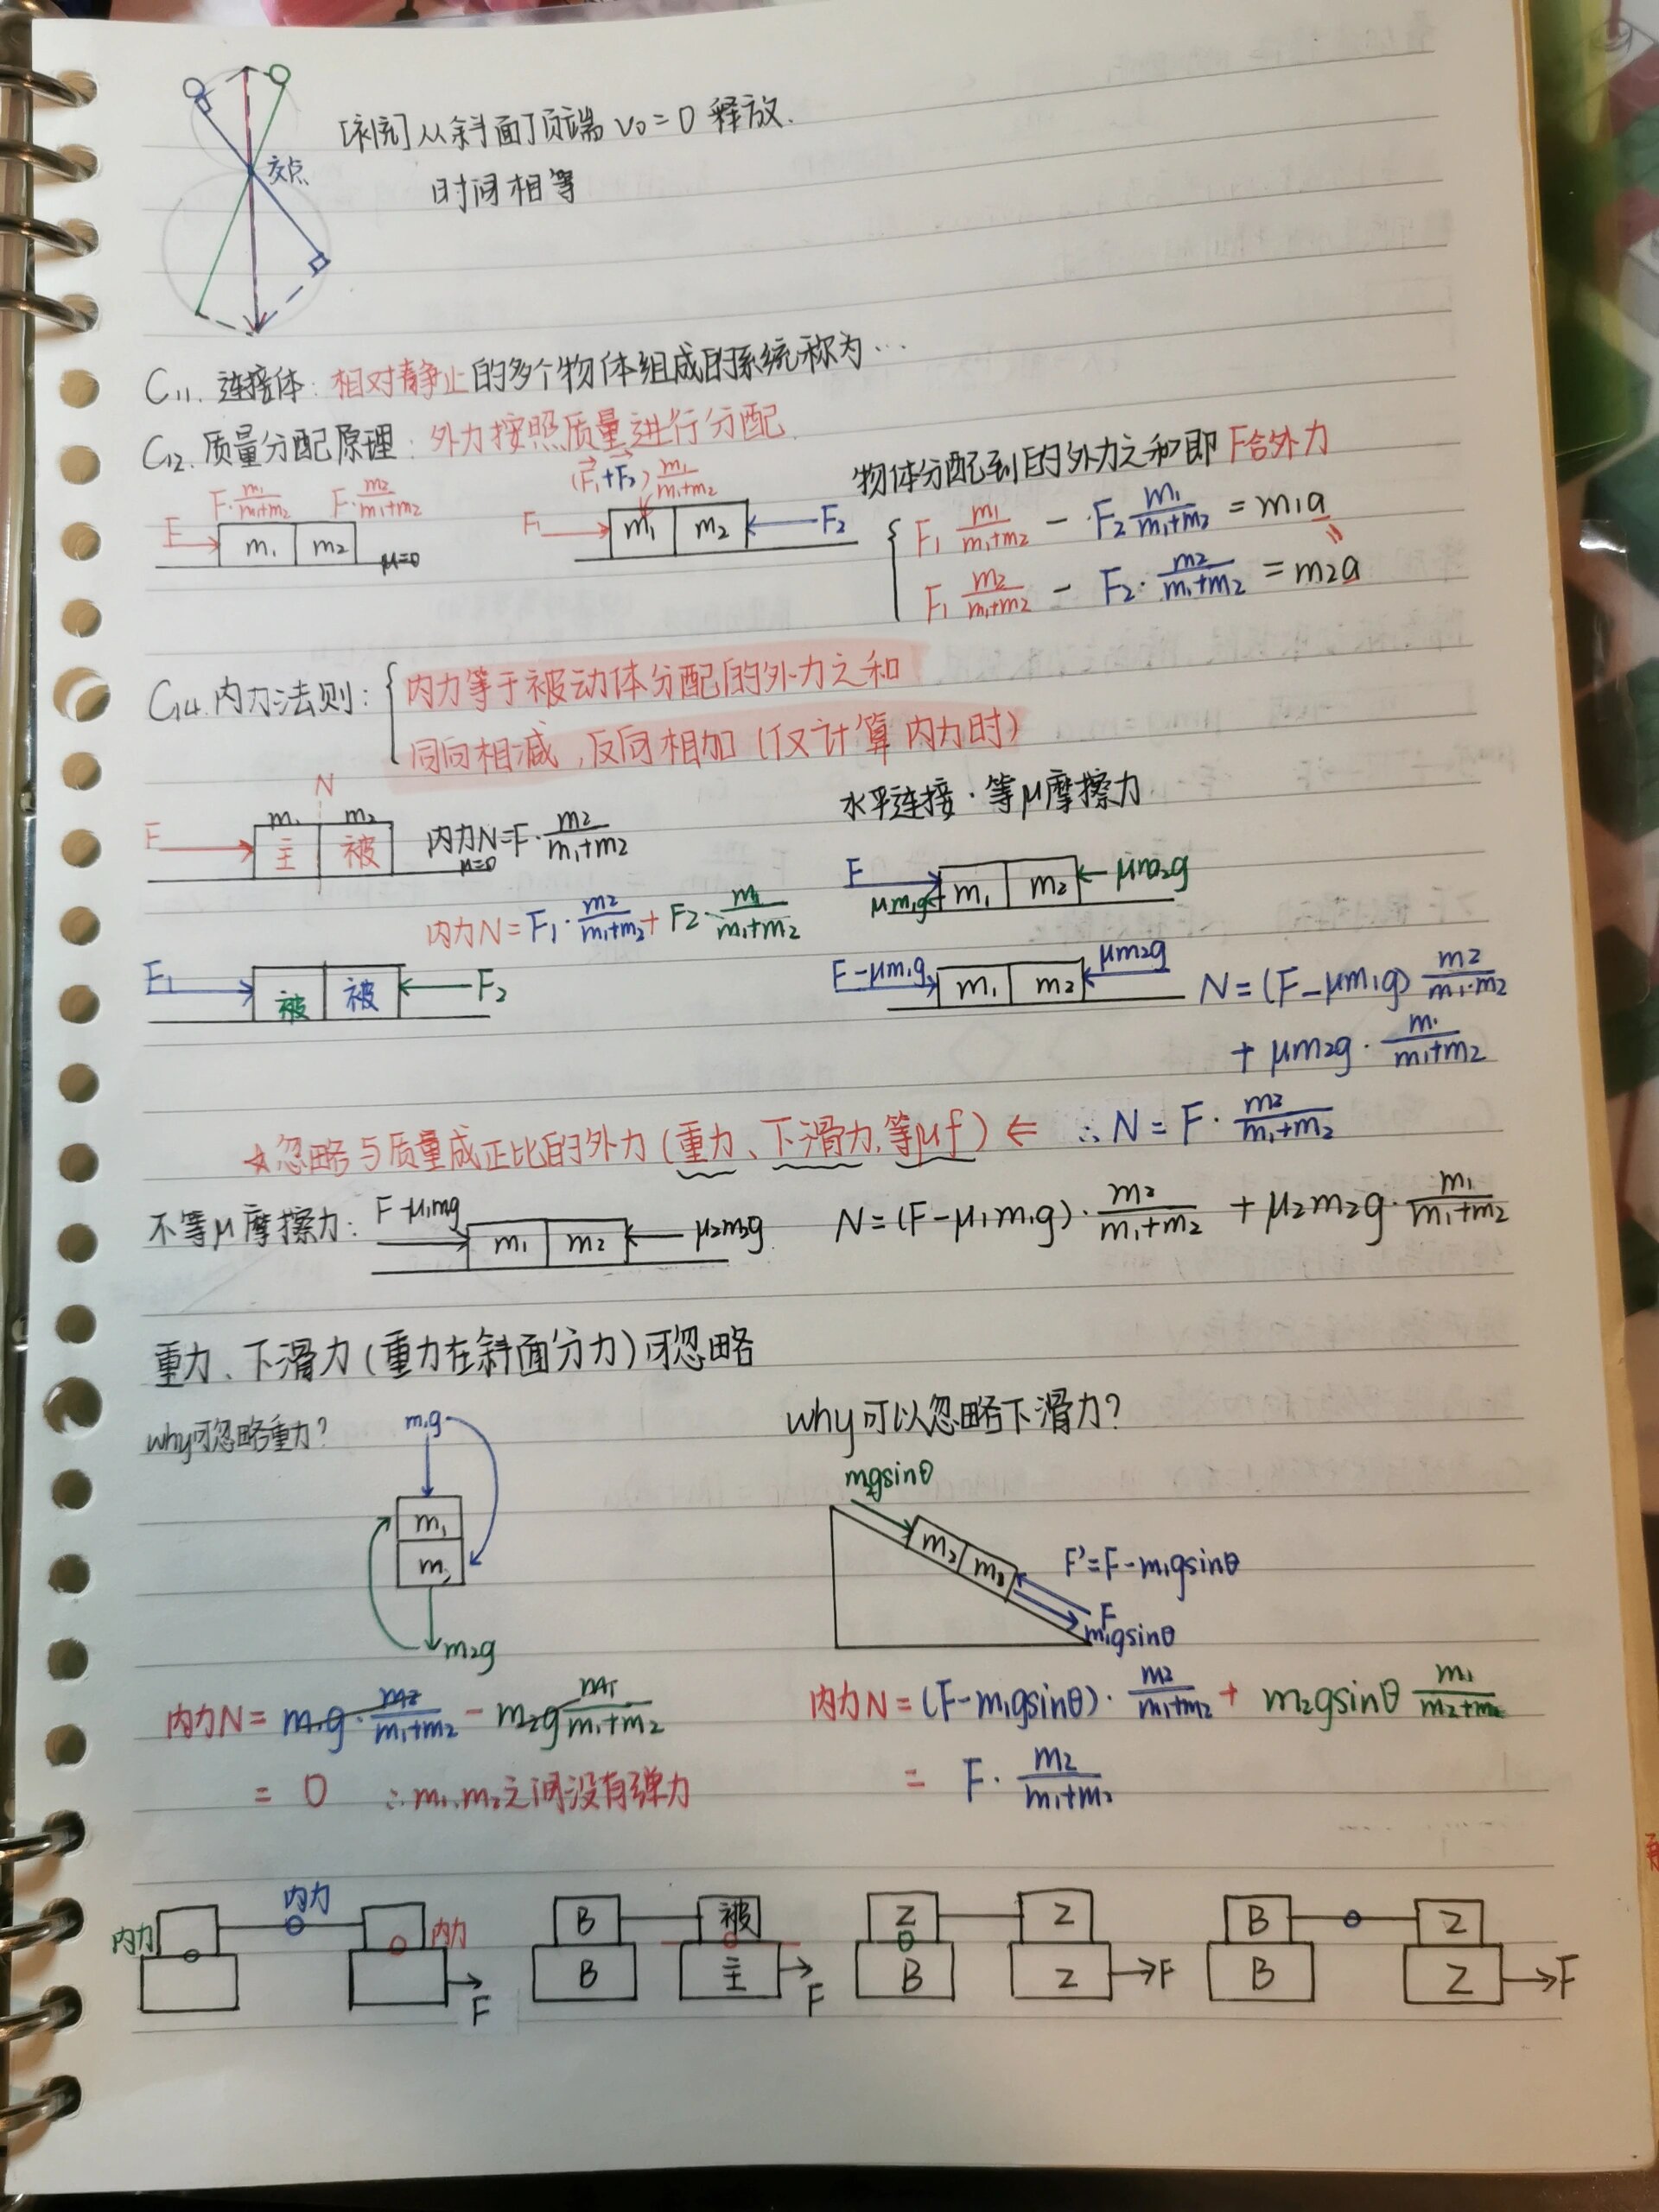 从斜面顶端 v₀=0 释放.
时间相等
交点
C11. 连接体: 相对静止的多个物体组成的系统称为…
C12. 质量分配原理: 外力按照质量进行分配.
物体分配到的外力之和即F合外力
F·m₁/(m₁+m₂) F·m₂/(m₁+m₂)
F m₁ m₂ μ=0
(F₁+F₂) m₁/(m₁+m₂)
F₁ m₁ m₂ F₂
F₁ m₁/(m₁+m₂) - F₂ m₁/(m₁+m₂) = m₁a
F₁ m₂/(m₁+m₂) - F₂· m₂/(m₁+m₂) = m₂a
C14. 内力法则: 内力等于被动体分配的外力之和
同向相减,反向相加(仅计算内力时)
N
m₁ m₂
F 主 被
内力N=F· m₂/(m₁+m₂)
μ=0
内力N=F₁· m₂/(m₁+m₂) + F₂· m₁/(m₁+m₂)
F₁ 被 被 F₂
水平连接·等μ摩擦力
F μm₁g m₁ m₂ μm₂g
F-μm₁g m₁ m₂ μm₂g
N=(F-μm₁g) m₂/(m₁·m₂)
+ μm₂g · m₁/(m₁+m₂)
☆忽略与质量成正比的外力(重力、下滑力,等μf) ⇐ ∴N=F· m₂/(m₁+m₂)
不等μ摩擦力: F-μ₁mg m₁ m₂ μ₂m₂g. N=(F-μ₁m₁g)· m₂/(m₁+m₂) + μ₂m₂g· m₁/(m₁+m₂)
重力、下滑力(重力在斜面分力)可忽略
why可忽略重力?
m₁g
m₁
m₂
m₂g
内力N= m₁g· m₂/(m₁+m₂) - m₂g m₁/(m₁+m₂)
= 0 ∴m₁、m₂之间没有弹力
why可以忽略下滑力?
m₂gsinθ
m₂
F'=F-m₁gsinθ
F
m₁gsinθ
内力N=(F-m₁gsinθ)· m₂/(m₁+m₂) + m₂gsinθ m₁/(m₂+m₁)
= F· m₂/(m₁+m₂)
内力 内力 内力 F
B 被 B 主 F
Z Z B Z F
B Z B Z F